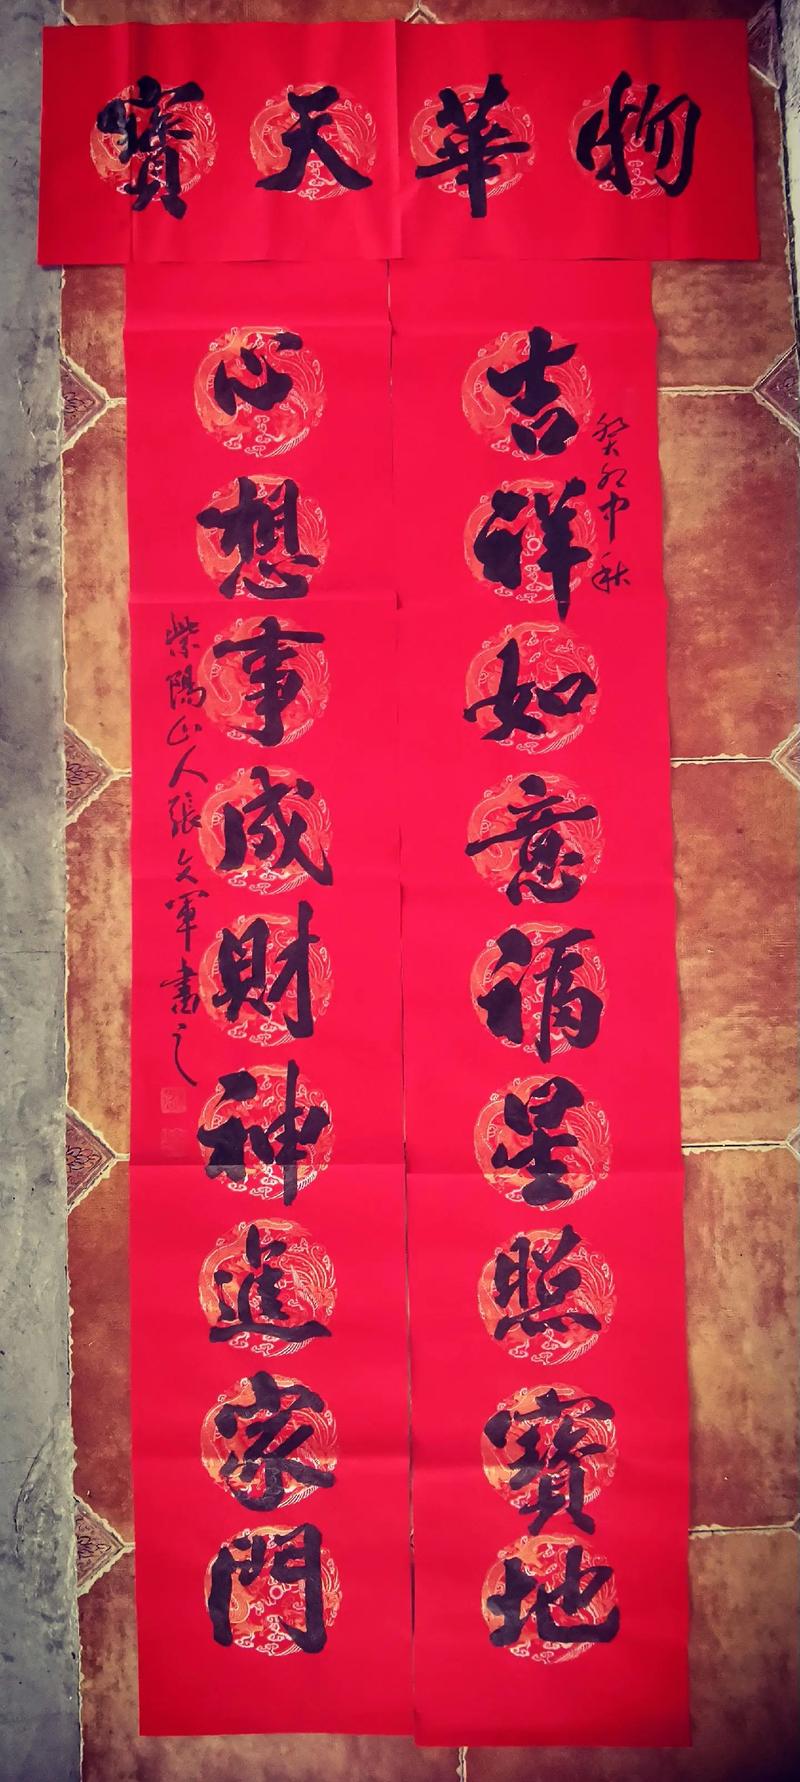 物華天寶
吉祥如意福星照寶地
癸卯中秋
心想事成財神進家門
紫陽山人張文軍書之